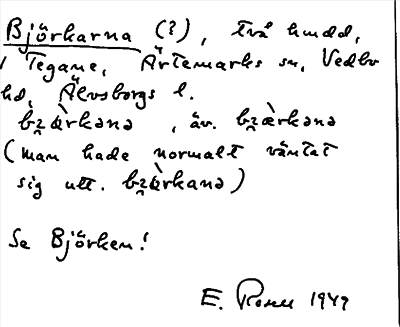 Björkarna (?), två hmdd,
i Tegane, Ärtemarks sn, Vedbo
hd, Älvsborgs l.
bʒ̯œ̀rkənə, äv. bʒ̯œrkənə
(man hade normalt väntat
sig utt. bʒ̯œ̀rkanə)
Se Björken!
E. 1949